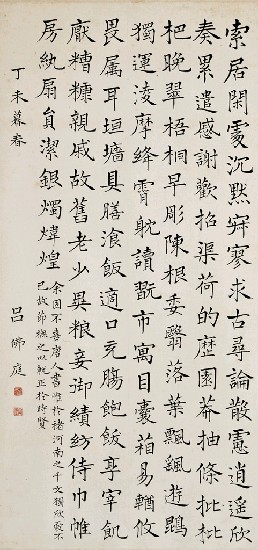 索居閑處沉默寂寥求古尋論散慮逍遙欣
奏累遣感謝歡招渠荷的歷園莽抽條枇
杷晚翠梧桐早彫陳根委翳落葉飄颻遊鵾
獨運淩摩絳霄耽讀翫市寓目囊箱易輶攸
畏属耳垣墻具膳飡飯適口充腸飽飫享宰飢
厭糟糠親戚故舊老少異粮妾御績紡侍巾帷
房紈扇員潔銀燭煒煌
余因不喜唐人書唯於褚河南之千文獨欣愛不
已故節臨之以就正於時賢
丁未暮春
呂佛庭